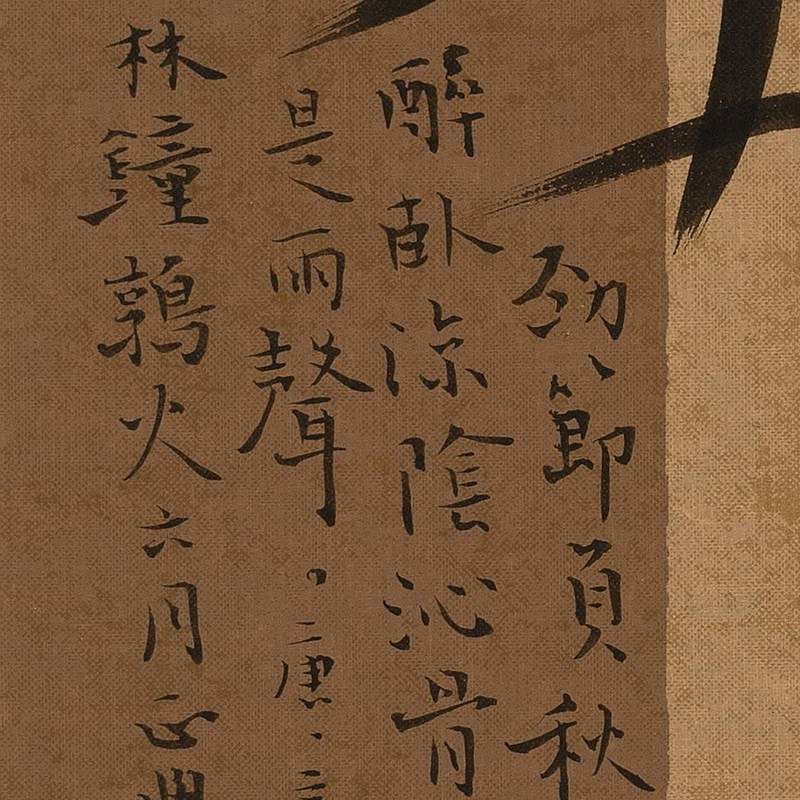 劲節負秋
醉卧涼陰沁骨
是雨聲
唐
林鐘鶉火六月正